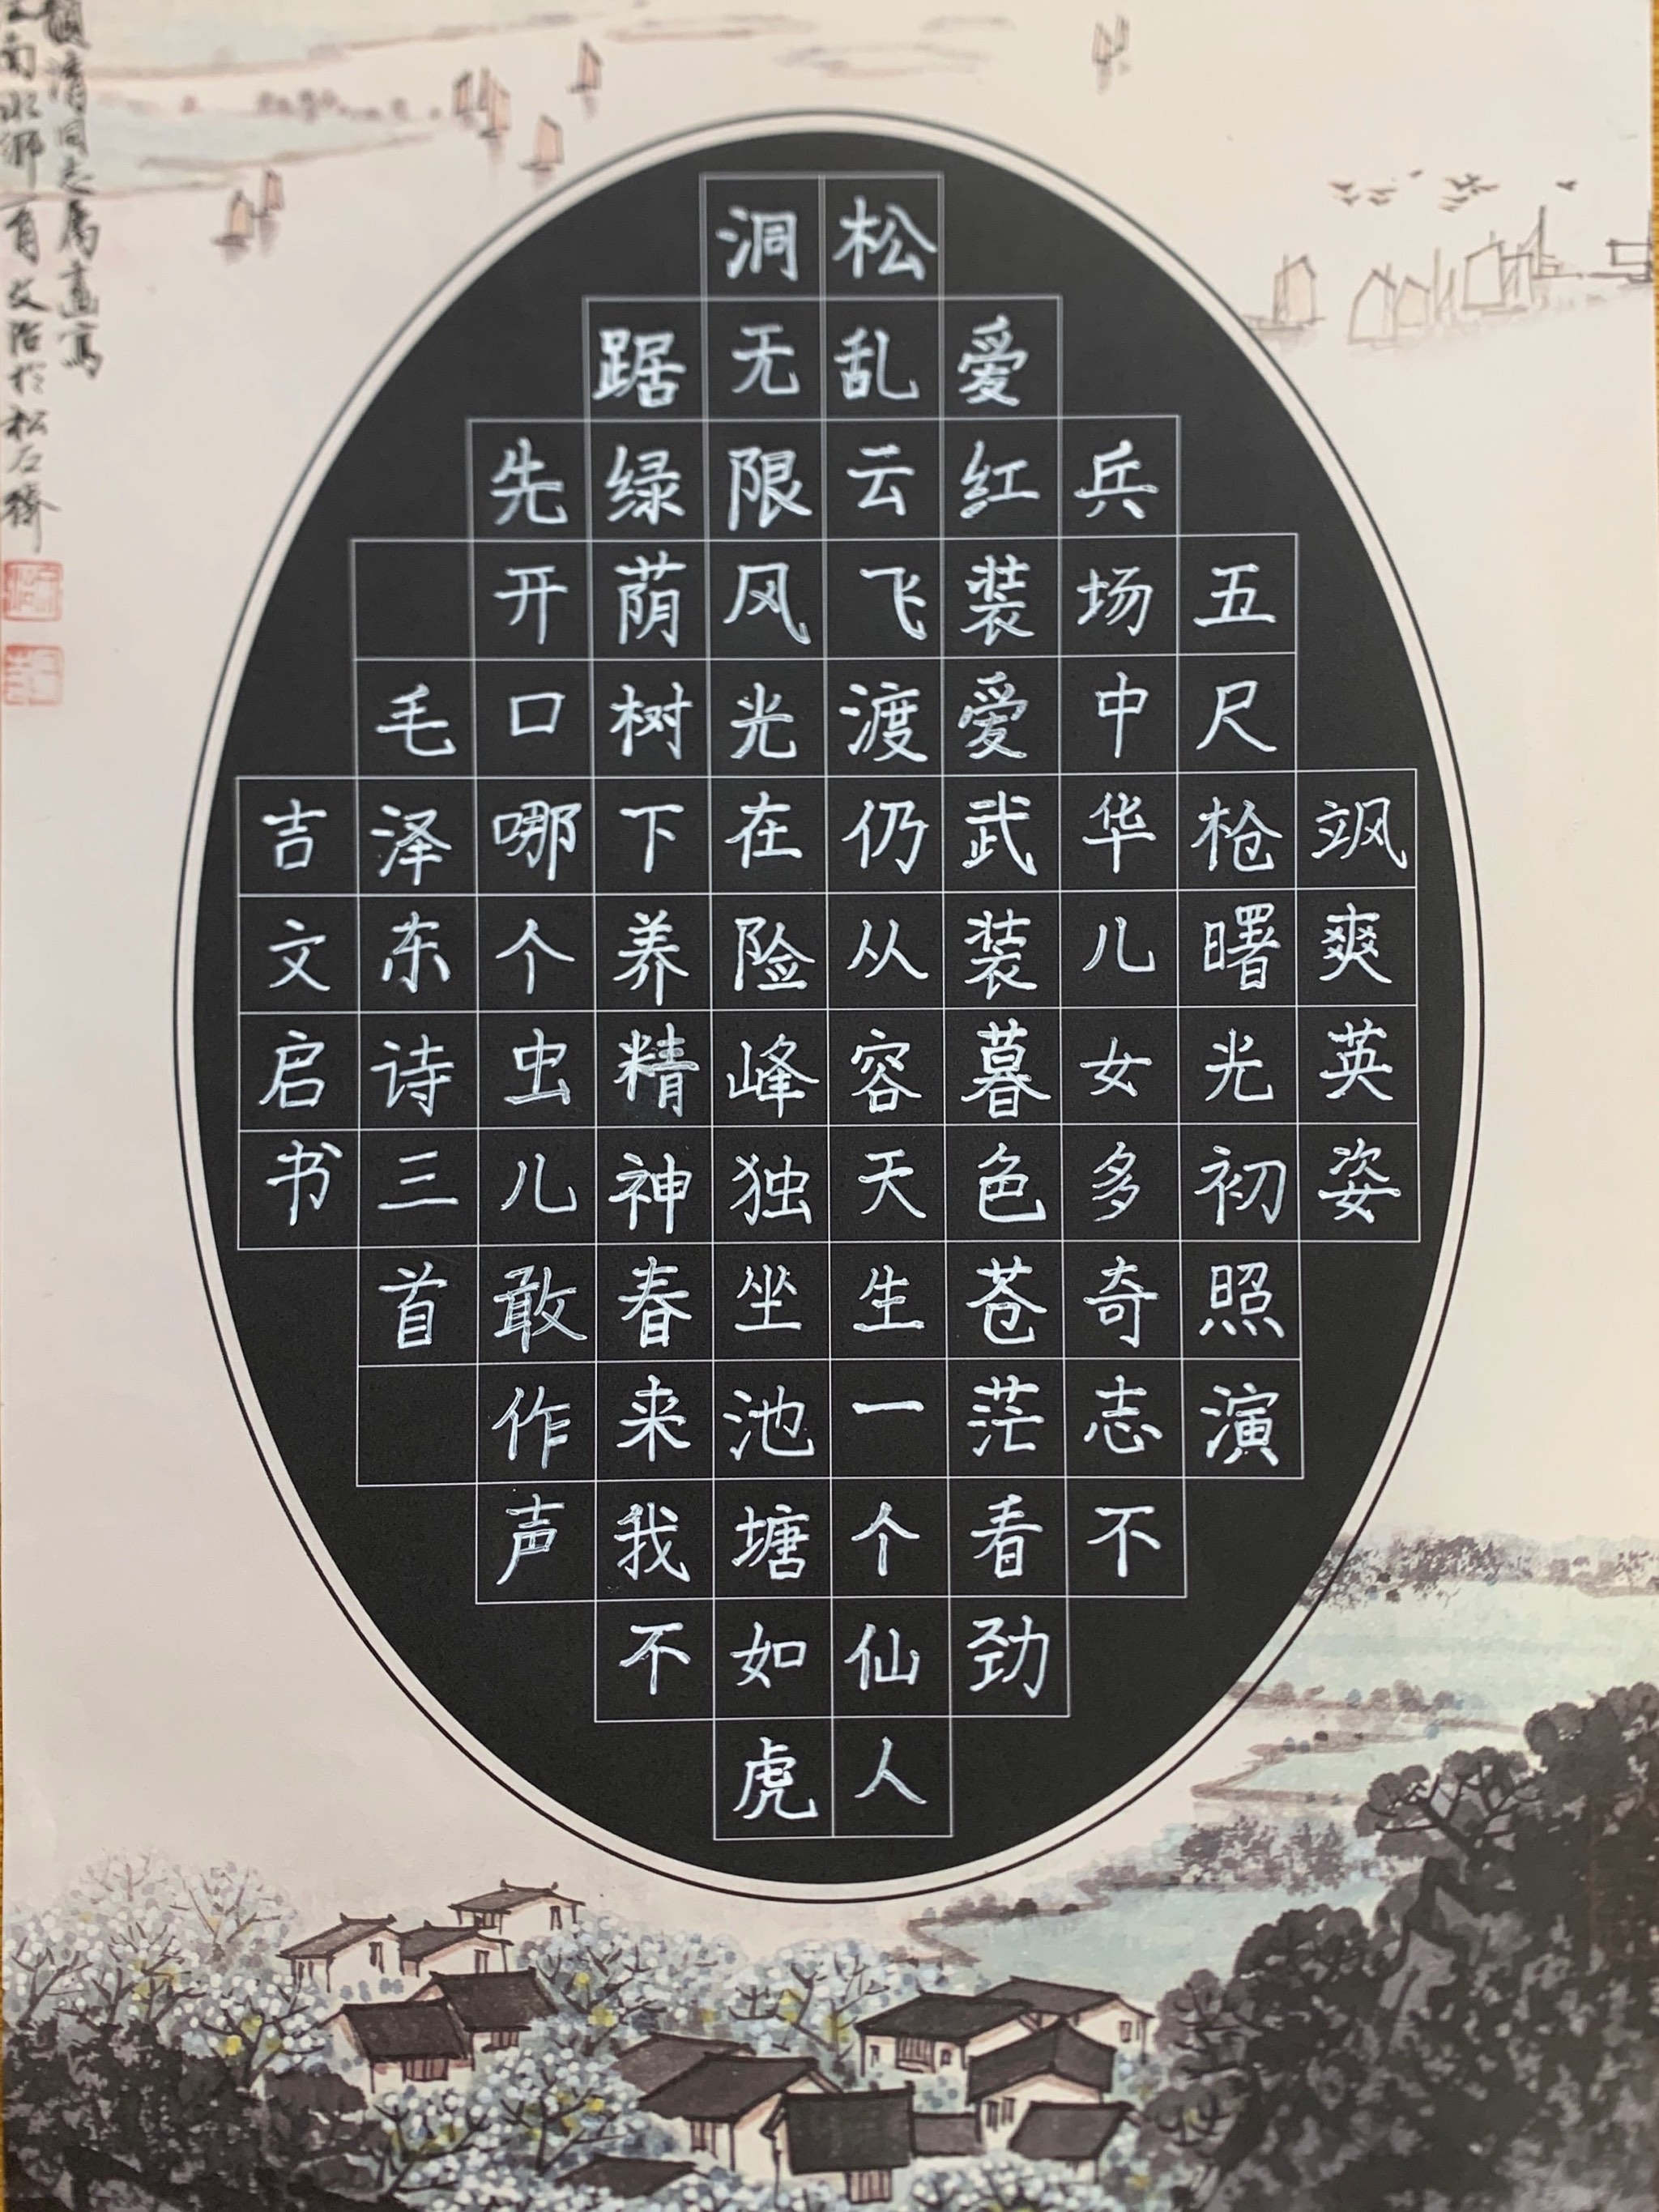 飒爽英姿
五尺枪曙光初照演
兵场中华儿女多奇志不
爱红装爱武装暮色苍茫看劲
松乱云飞渡仍从容天生一个仙人
洞无限风光在险峰独坐池塘如虎
踞绿荫树下养精神春来我不
先开口哪个虫儿敢作声
毛泽东诗三首
吉文启书
清同志属画写
南水乡文治於松石斋